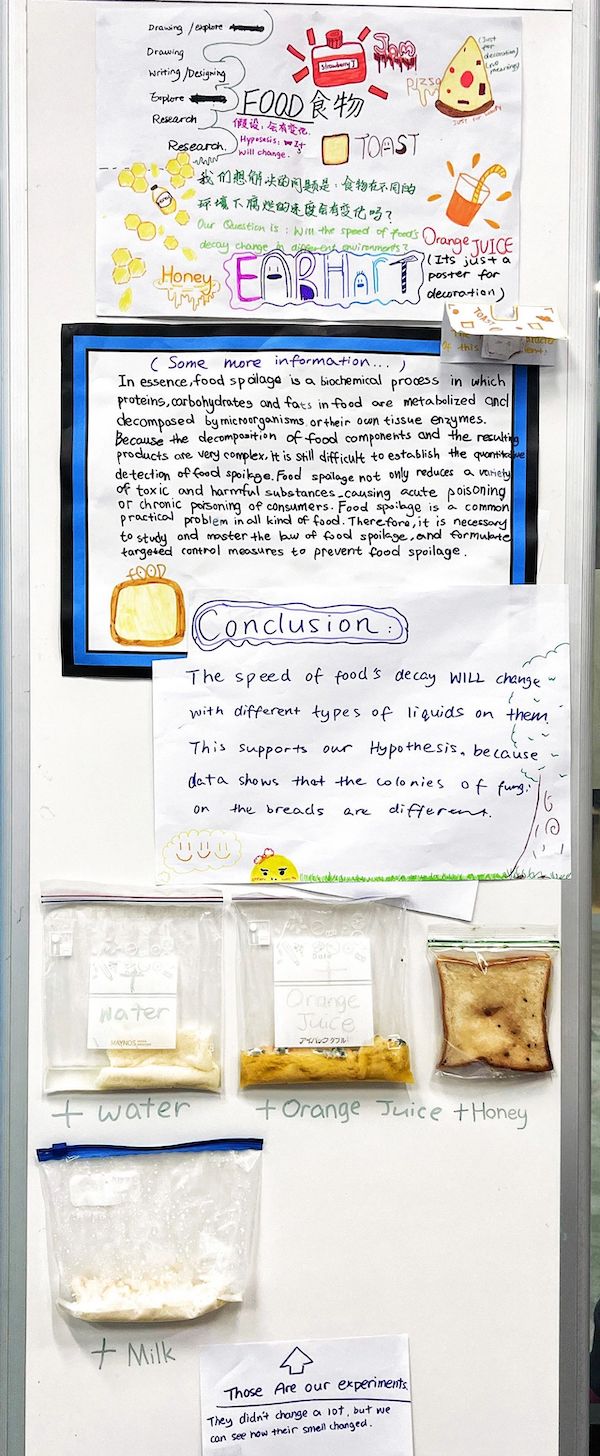 Drawing /explore
Drawing
Writing /Designing
Explore
Research
Research.
Strawberry J
Jam
pizza
(Just for decoration) (no meaning)
Just for
FOOD 食物
假设:会有变化.
Hyposesis: It will change.
TOAST
我们想解决的问题是:食物在不同的
环境下腐烂的速度会有变化吗?
Our Question is: Will the speed of food's
decay change in different environments?
Orange JUICE
(Its just a
poster for
decoration)
Honey
EARHART
TOAST
of this
(Some more information...)
In essence, food spoilage is a biochemical process in which
proteins, carbohydrates and fats in food are metabolized and
decomposed by microorganisms or their own tissue enzymes.
Because the decomposition of food components and the resulting
products are very complex, it is still difficult to establish the quantitative
detection of food spoilage. Food spoilage not only reduces a variety
of toxic and harmful substances-causing acute poisoning
or chronic poisoning of consumers. Food spoilage is a common
practical problem in all kind of food. Therefore, it is necessary
to study and master the law of food spoilage, and formulate
targeted control measures to prevent food spoilage.
FOOD
Conclusion:
The speed of food's decay WILL change
with different types of liquids on them.
This supports our Hypothesis, because
data shows that the colonies of fungi
on the breads are different.
water
MAYNOS
Orange
Juice
アイハック ダブル
+ water
+ Orange Juice
+ Honey
+ Milk
Those Are our experiments.
They didn't change a lot, but we
can see how their smell changed.